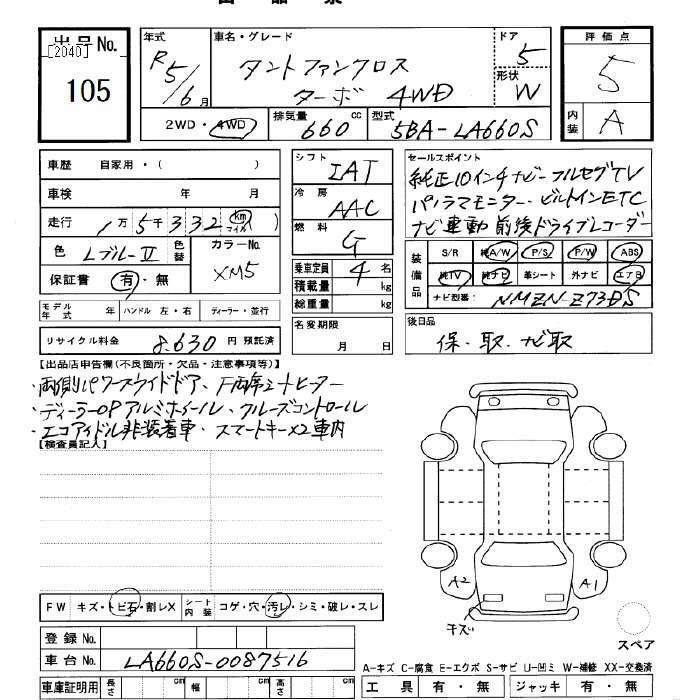 出品票
出品No.
[2040]
105
年式
R5/6月
車名・グレード
タントファンクロス
ターボ 4WD
ドア
5
形状
W
2WD・4WD
排気量 660 cc
型式 5BA-LA660S
評価点
5
内装 A
車歴 自家用・( )
車検 年 月
走行 1万5千332 km マイル( )
色 Lブルー-II 色替
カラーNo. XM5
保証書 有・無
モデル年式 年 ハンドル 左・右 ディーラー・並行
リサイクル料金 8,630 円 預託済
シフト IAT
冷房 AAC
燃料 G
乗車定員 4 名
積載量 kg
総重量 kg
名変期限
月 日
セールスポイント
純正10インチナビ-フルセグTV
パノラマモニター・ビルトインETC
ナビ連動 前後ドライブレコーダ
装備品
S/R 純A/W P/S P/W ABS
純TV 純ナビ 革シート 外ナビ エアB
ナビ型番: NMZN-Z73DS
後日品
保・取・ナビ取
【出品店申告欄(不良箇所・欠品・注意事項等)】
・両側パワースライドドア、F両席シートヒーター
・ディーラーOPアルミホイール、クルーズコントロール
・エコアイドル非装着車・スマートキー×2車内
【検査員記入】
A2
A1
キズ
スペア
FW キズ・トビ石・割レX シート内装 コゲ・穴・汚レ・シミ・破レ・スレ
登録No.
車台No. LA660S-0087516
車庫証明用 長さ cm 幅 cm 高さ cm
A-キズ C-腐食 E-エクボ S-サビ U-凹ミ W-補修 XX-交換済
工具 有・無 ジャッキ 有・無